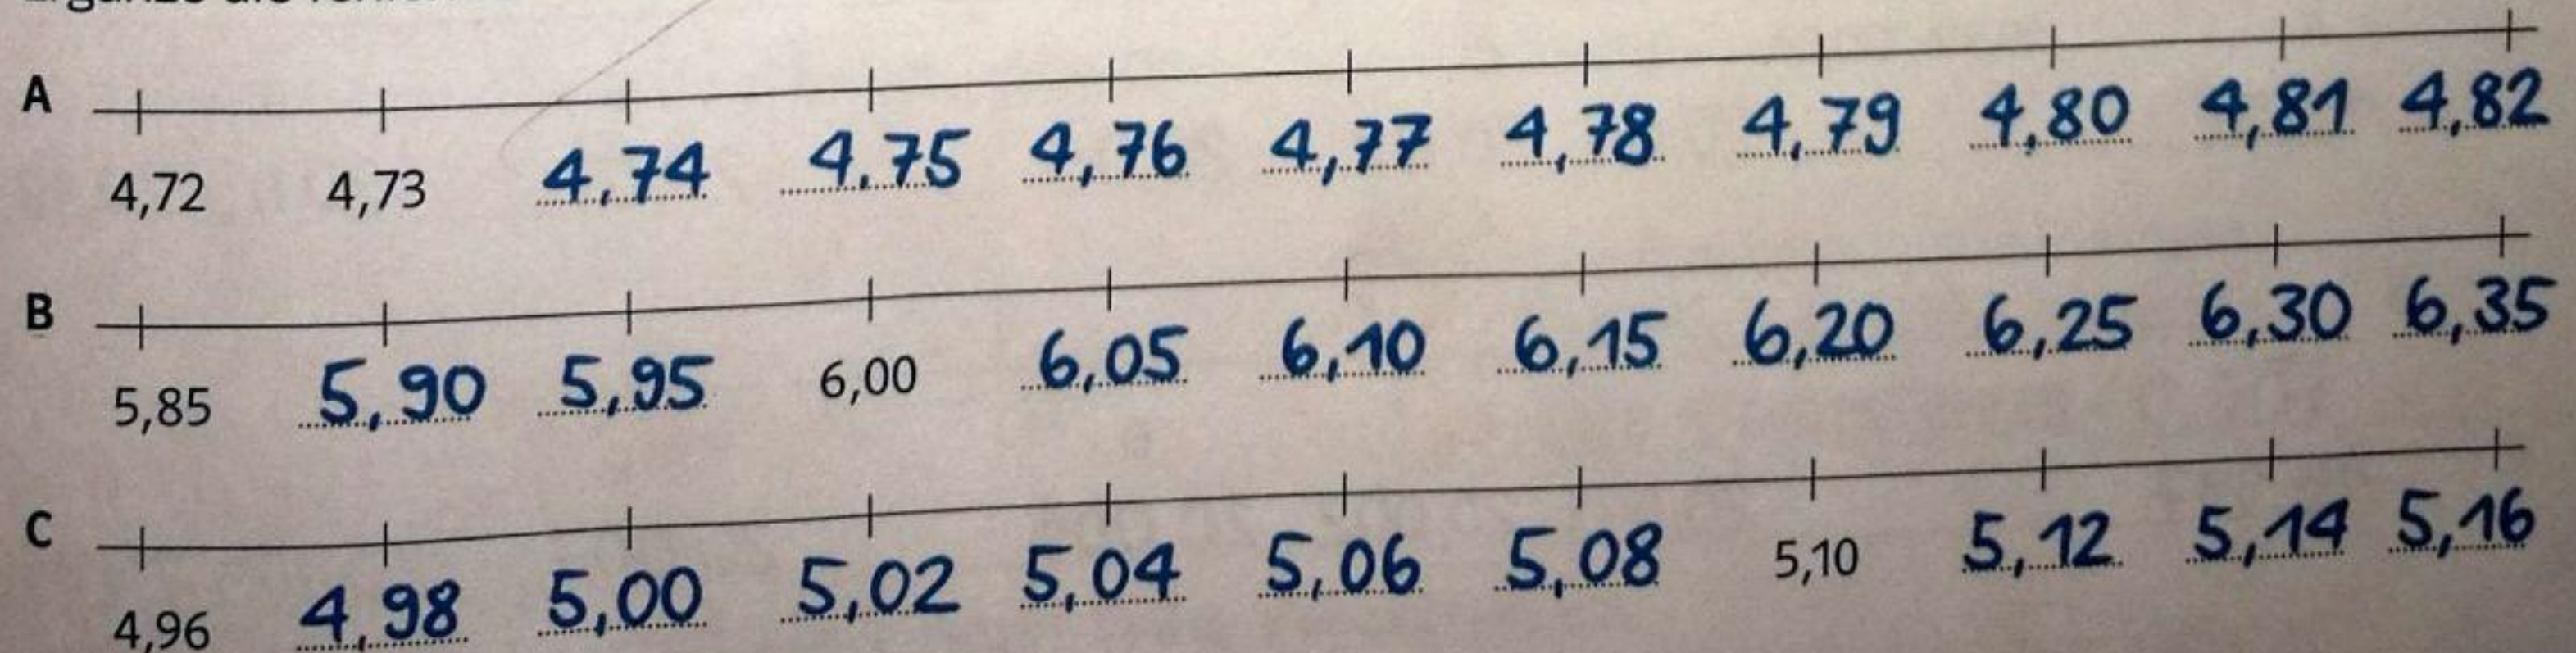 A
4,72 4,73 4,74 4,75 4,76 4,77 4,78 4,79 4,80 4,81 4,82
B
5,85 5,90 5,95 6,00 6,05 6,10 6,15 6,20 6,25 6,30 6,35
C
4,96 4,98 5,00 5,02 5,04 5,06 5,08 5,10 5,12 5,14 5,16